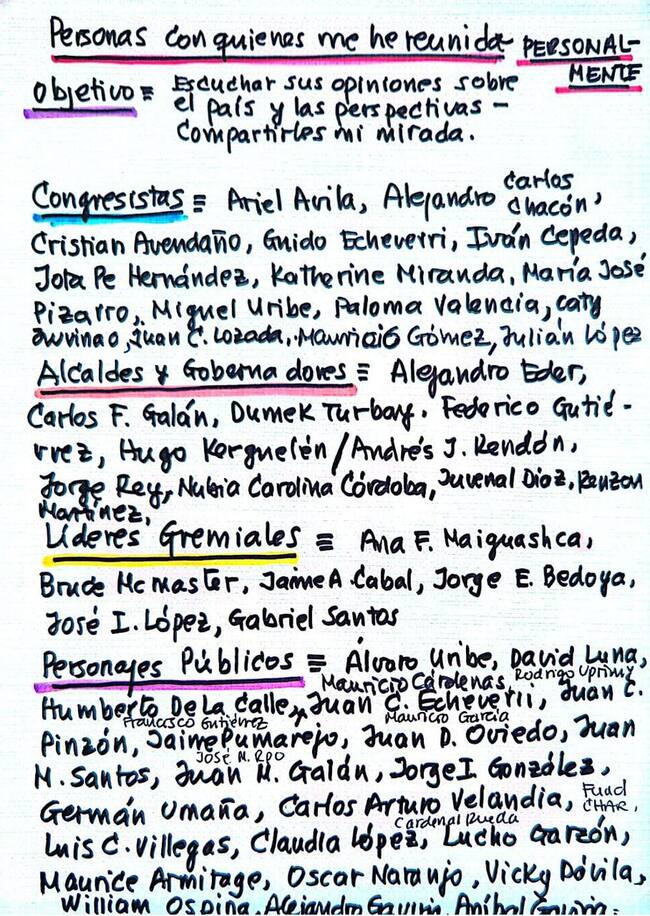 Personas con quienes me he reunido PERSONAL-
MENTE
Objetivo = Escuchar sus opiniones sobre
el país y las perspectivas -
Compartirles mi mirada.
Congresistas = Ariel Avila, Alejandro Carlos
Chacón,
Cristian Avendaño, Guido Echeverri, Iván Cepeda,
Jota Pe Hernández, Katherine Miranda, María José
Pizarro, Miguel Uribe, Paloma Valencia, Caty
Juvinao, Juan C. Lozada, Mauricio Gómez, Julián López
Alcaldes y Gobernadores = Alejandro Eder,
Carlos F. Galán, Dumek Turbay, Federico Gutié-
rrez, Hugo Kerguelén / Andrés J. Rendón,
Jorge Rey, Nubia Carolina Córdoba, Juvenal Díaz, Renzon
Martínez,
Líderes Gremiales = Ana F. Maiguashca,
Bruce Mcmaster, Jaime A Cabal, Jorge E. Bedoya,
José I. López, Gabriel Santos
Personajes Públicos = Álvaro Uribe, David Luna,
Mauricio Cárdenas Rodrigo Uprimy
Humberto De La Calle, Juan C. Echeverri, Juan C.
Francisco Gutiérrez Mauricio García
Pinzón, Jaime Pumarejo, Juan D. Oviedo, Juan
José M. RPO
M. Santos, Juan M. Galán, Jorge I. González,
Germán Umaña, Carlos Arturo Velandia, Fuad
CHAR,
Cardenal Rueda
Luis C. Villegas, Claudia López, Lucho Garzón,
Maurice Armitage, Oscar Naranjo, Vicky Dávila,
William Ospina, Alejandro Gaviria, Aníbal Gaviria.